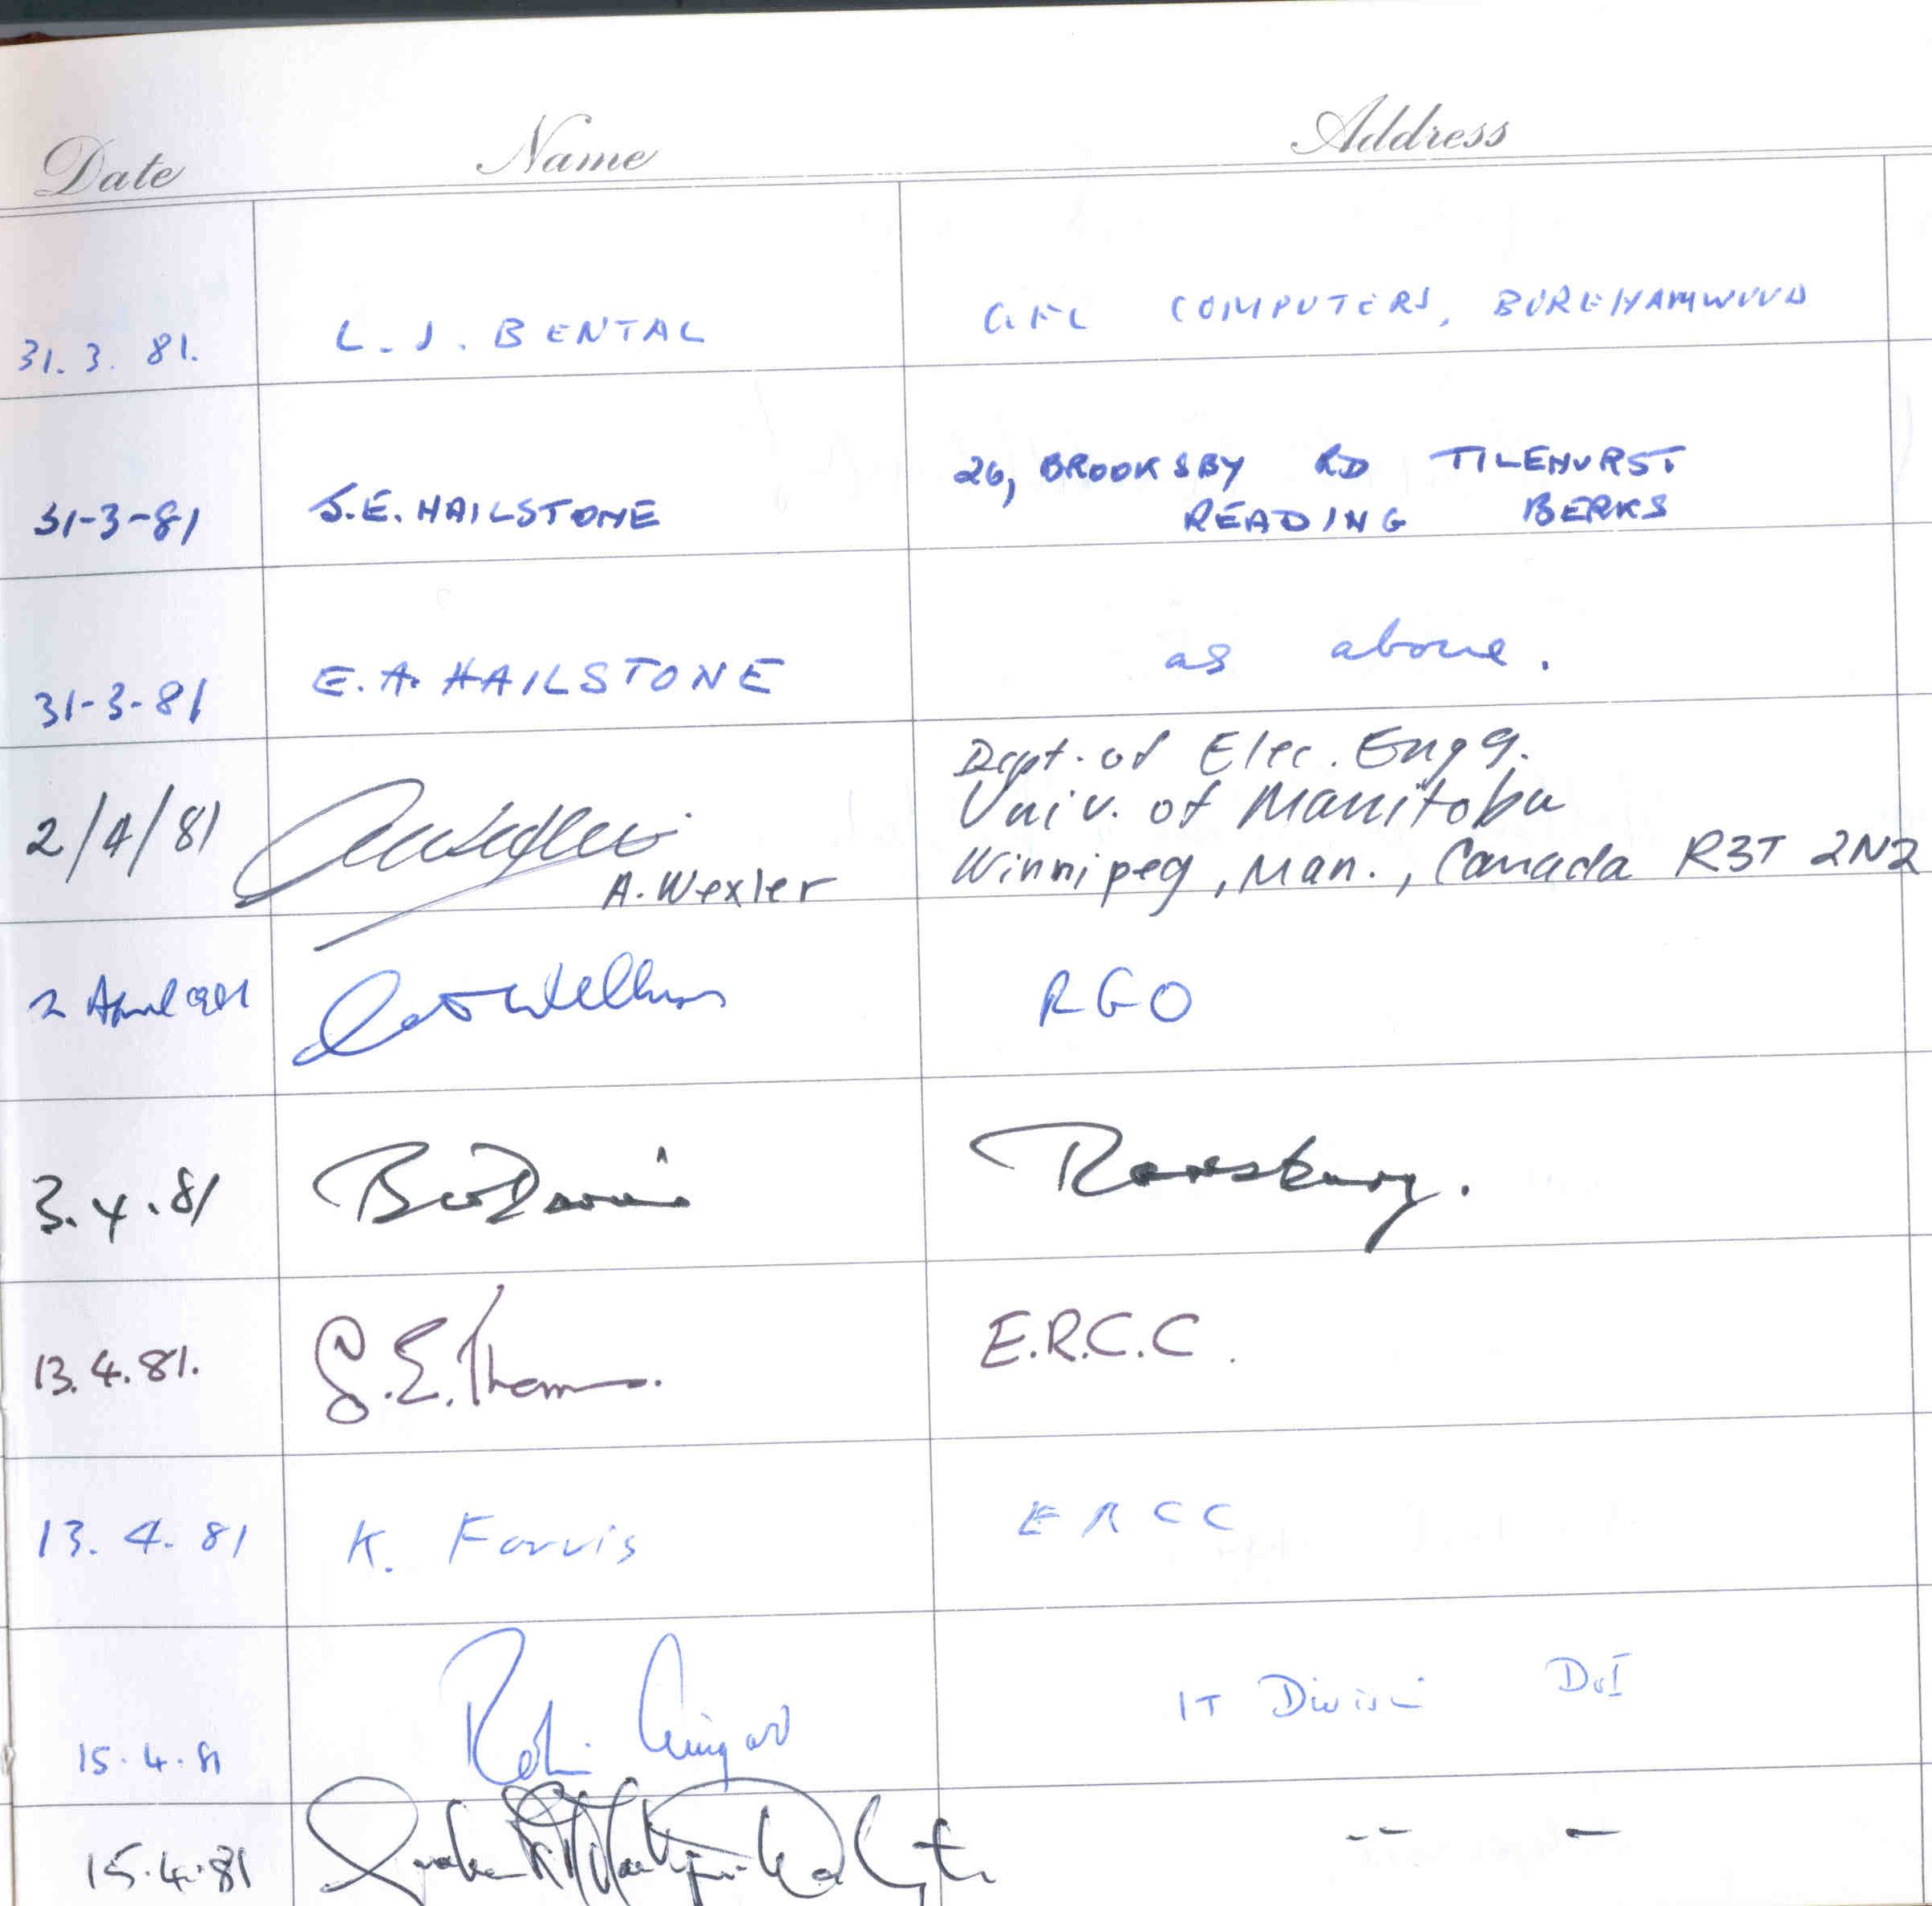 Date Name Address
31.3.81. L.J. BENTAL GEC COMPUTERS, BOREHAMWOOD
31-3-81 S.E. HAILSTONE 26, BROOKSBY RD TILEHURST
READING BERKS
31-3-81 E.A. HAILSTONE as above.
2/4/81 A. Wexler Dept. of Elec. Engg.
Univ. of Manitoba
Winnipeg, Man., Canada R3T 2N2
2 April 1981 RGO
3.4.81
13.4.81. G.E. Thom E.R.C.C.
13.4.81 K. Farvis ERCC
15.4.81 IT Division DoI
15.4.81 -- -